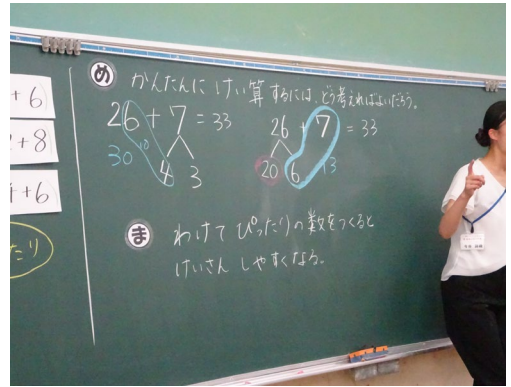 め かんたんに けい算 するには、どう考えればよいだろう。
26 + 7 = 33
30 10 4 3
26 + 7 = 33
20 6 13
ま わけて ぴったりの数をつくると
けいさん しやすくなる。
+ 6)
+8
+6)
たり